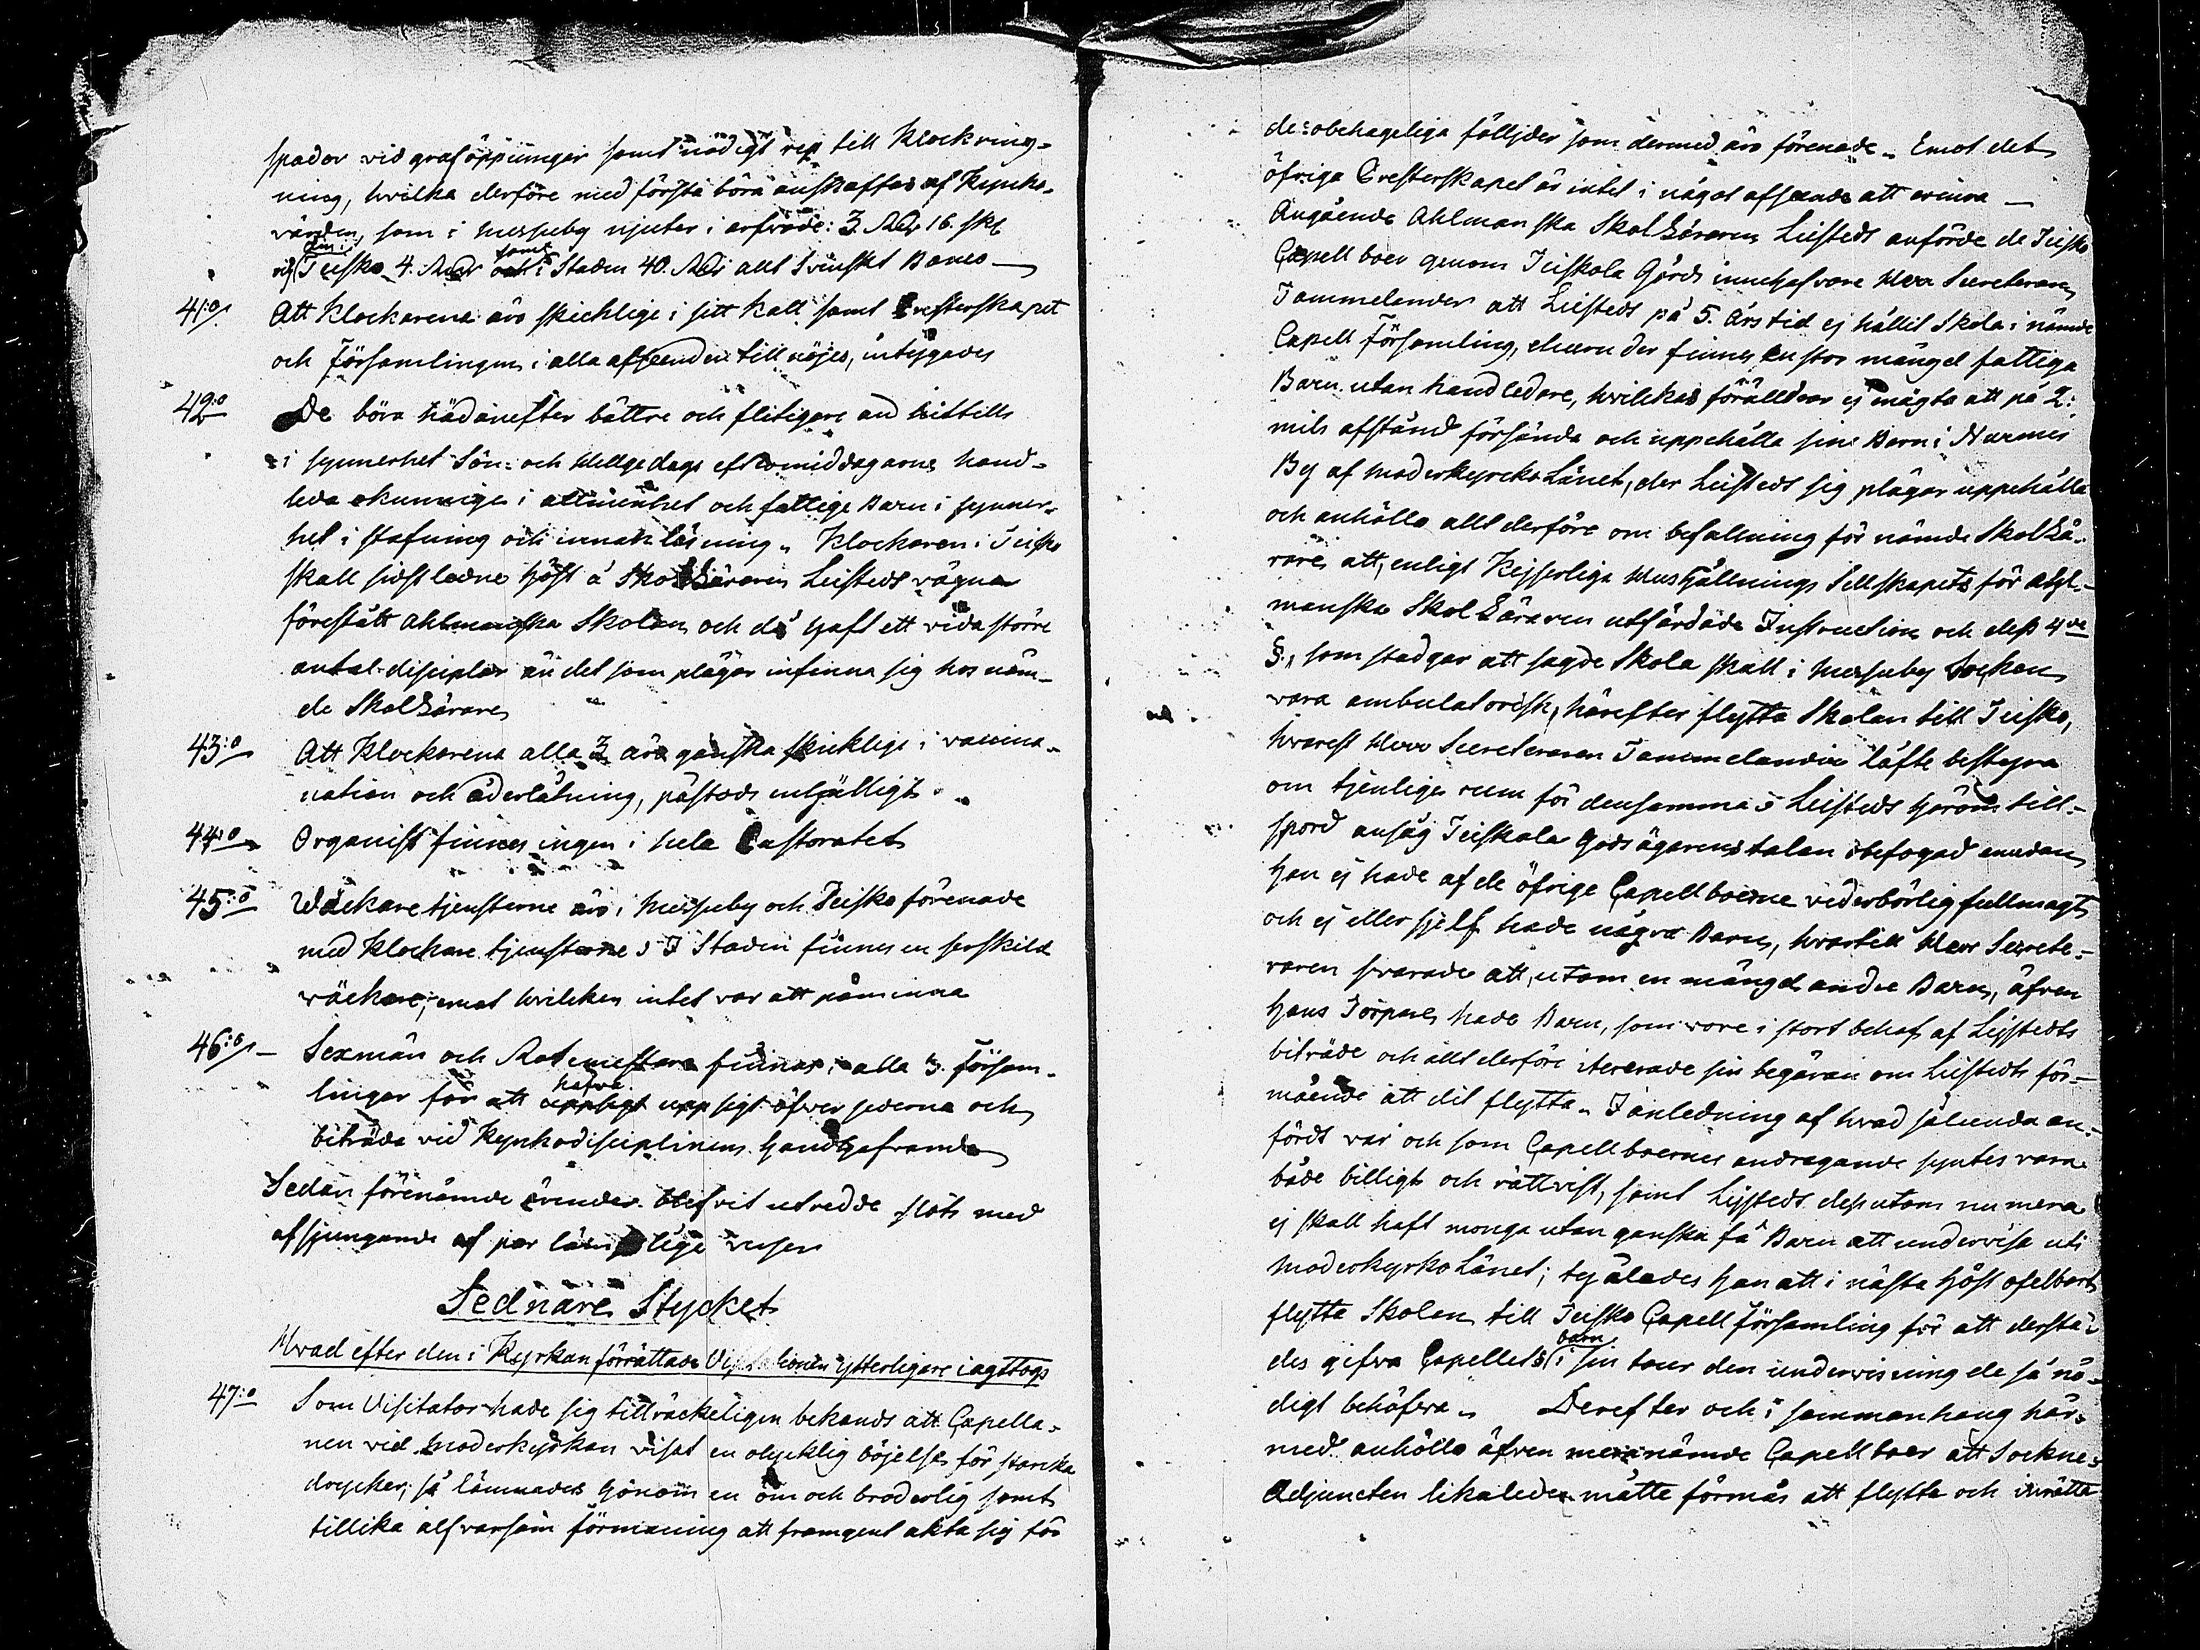 spador vid graföppningar samt nödigt rep till Klockring-
ning, hvilka derföre med första böra anskaffas af Kyrko-
värden, som i Messuby njuter i arfvode: 3. Rdr 16. sk
den i Teisko 4. Rdr samt i Staden 40. Rdr allt Svenskt Banco —
41:o Att Klockarena äro skicklige i sitt kall samt Presterskapet
och Församlingen i alla afseenden till nöjes, intygades
42:o De böra hädanefter bättre och flitigare än hittills
i synnerhet Sön- och Helgedags eftermiddagarne hand-
leda okunnige i allmänhet och fattige Barn i synner-
het i stafning och innanläsning. Klockaren i Teisko
skall sidstledne höst å Skol Läraren Leistedts vägnar
förestått Ahlmanska Skolan och då haft ett vida större
antal disciplar än det som plägar infinna sig hos näm-
de Skol Lärare
43:o Att Klockarena alla 3 äro ganska skicklige i vaccina-
nation och åderlåtning, påstods enhälligt.
44:o Organist finnes ingen i hela Pastoratet
45:o Wäckare tjensterne äro i Messuby och Teisko förenade
med Klockare tjensterne; I Staden finnes en serskild
väckare, emot hvilken intet var att påminna
46:o — Sexmän och Rotemästare finnas i alla 3. församl-
lingar för att hafva uppsigt öfver sederna och
biträda vid Kyrkodisciplinens handhafvande
Sedan förenämde ärender blifvit utredde slöts med
afsjungande af par lämplige verser
Sednare Stycket
Hvad efter den i Kyrkan förrättade Visitationen ytterligare iagttogs
47:o Som Visitator hade sig tillräckeligen bekandt att Capella-
nen vid Moderkyrkan visat en olycklig böjelse för starcka
drycker, så lämnades honom en öm och broderlig samt
tillika alfvarsam förmaning att framgent akta sig för
de obehageliga följder som dermed äro förenade. Emot det
öfriga Presterskapet är intet i något afseende att erinra —
Angående Ahlmanska Skol Läraren Leistedt anförde de Teisko
Capell boer genom Teiskola Gårds innehafvare Herr Secreteraren
Tammelander att Leistedt på 5. års tid ej hållit Skola i nämde
Capell Församling, ehuru der finnes en stor mängd fattiga
Barn utan handledare, hvilkas föräldrar ej mägta att på 2:
mils afstånd försända och uppehålla sine Barn i Nurmis
By af moderkyrcko Länet, der Leistedt sig plägar uppehålla
och anhölle allt derföre om befallning för nämde Skol Lä-
rare, att, enligt Kejserliga Hushållnings Sellskapets för Ahl-
manska Skol Läraren utfärdade Instruction och dess 4de
§., som stadgar att sagde Skola skall i Messuby Socken
vara ambulatorisk, härefter flytta Skolan till Teisko,
hvarest Herr Secreteraren Tammelander låfte bestyra
om tjenlige rum för densamma; Leistedt härom till-
spord ansåg Teiskola Gods ägarens talan obefogad emedan
han ej hade af de öfrige Capell boerne vederbörlig fullmagt
och ej eller sjelf hade några Barn, hvartill Herr Secrete-
raren svarade att, utom en mängd andre Barn, äfven
hans Torpare hade Barn, som vore i stort behof af Leistedts
biträde och allt derföre itererade sin begäran om Leistedts för-
mående att dit flytta. I anledning af hvad sålunda an-
fördt var och som Capell boernes andragande syntes vara
både billigt och rättvist, samt Leistedt dessutom numera
ej skall haft monga utan ganska få Barn att undervisa uti
Moderkyrko Länet; ty ålades han att i nästa höst ofelbart
flytta Skolan till Teisko Capell Församling för att derstä-
des gifva Capellets barn i sin tour den undervisning de så nö-
digt behöfva. Derefter och i sammanhang här-
med anhöllo äfven mernämde Capell boer att Sockne-
Adjuncten likaledes måtte förmås att flytta och inrätta